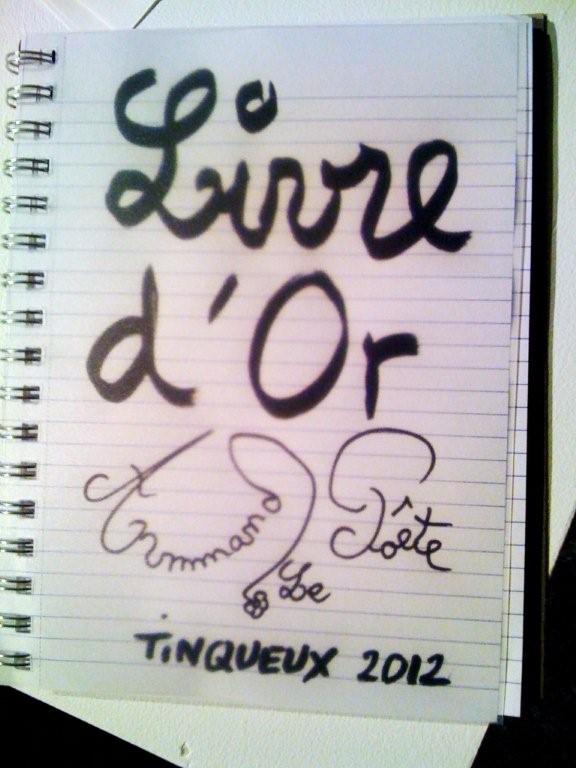 Livre
d'Or
Armmand Le Poête
TiNQUEUX 2012